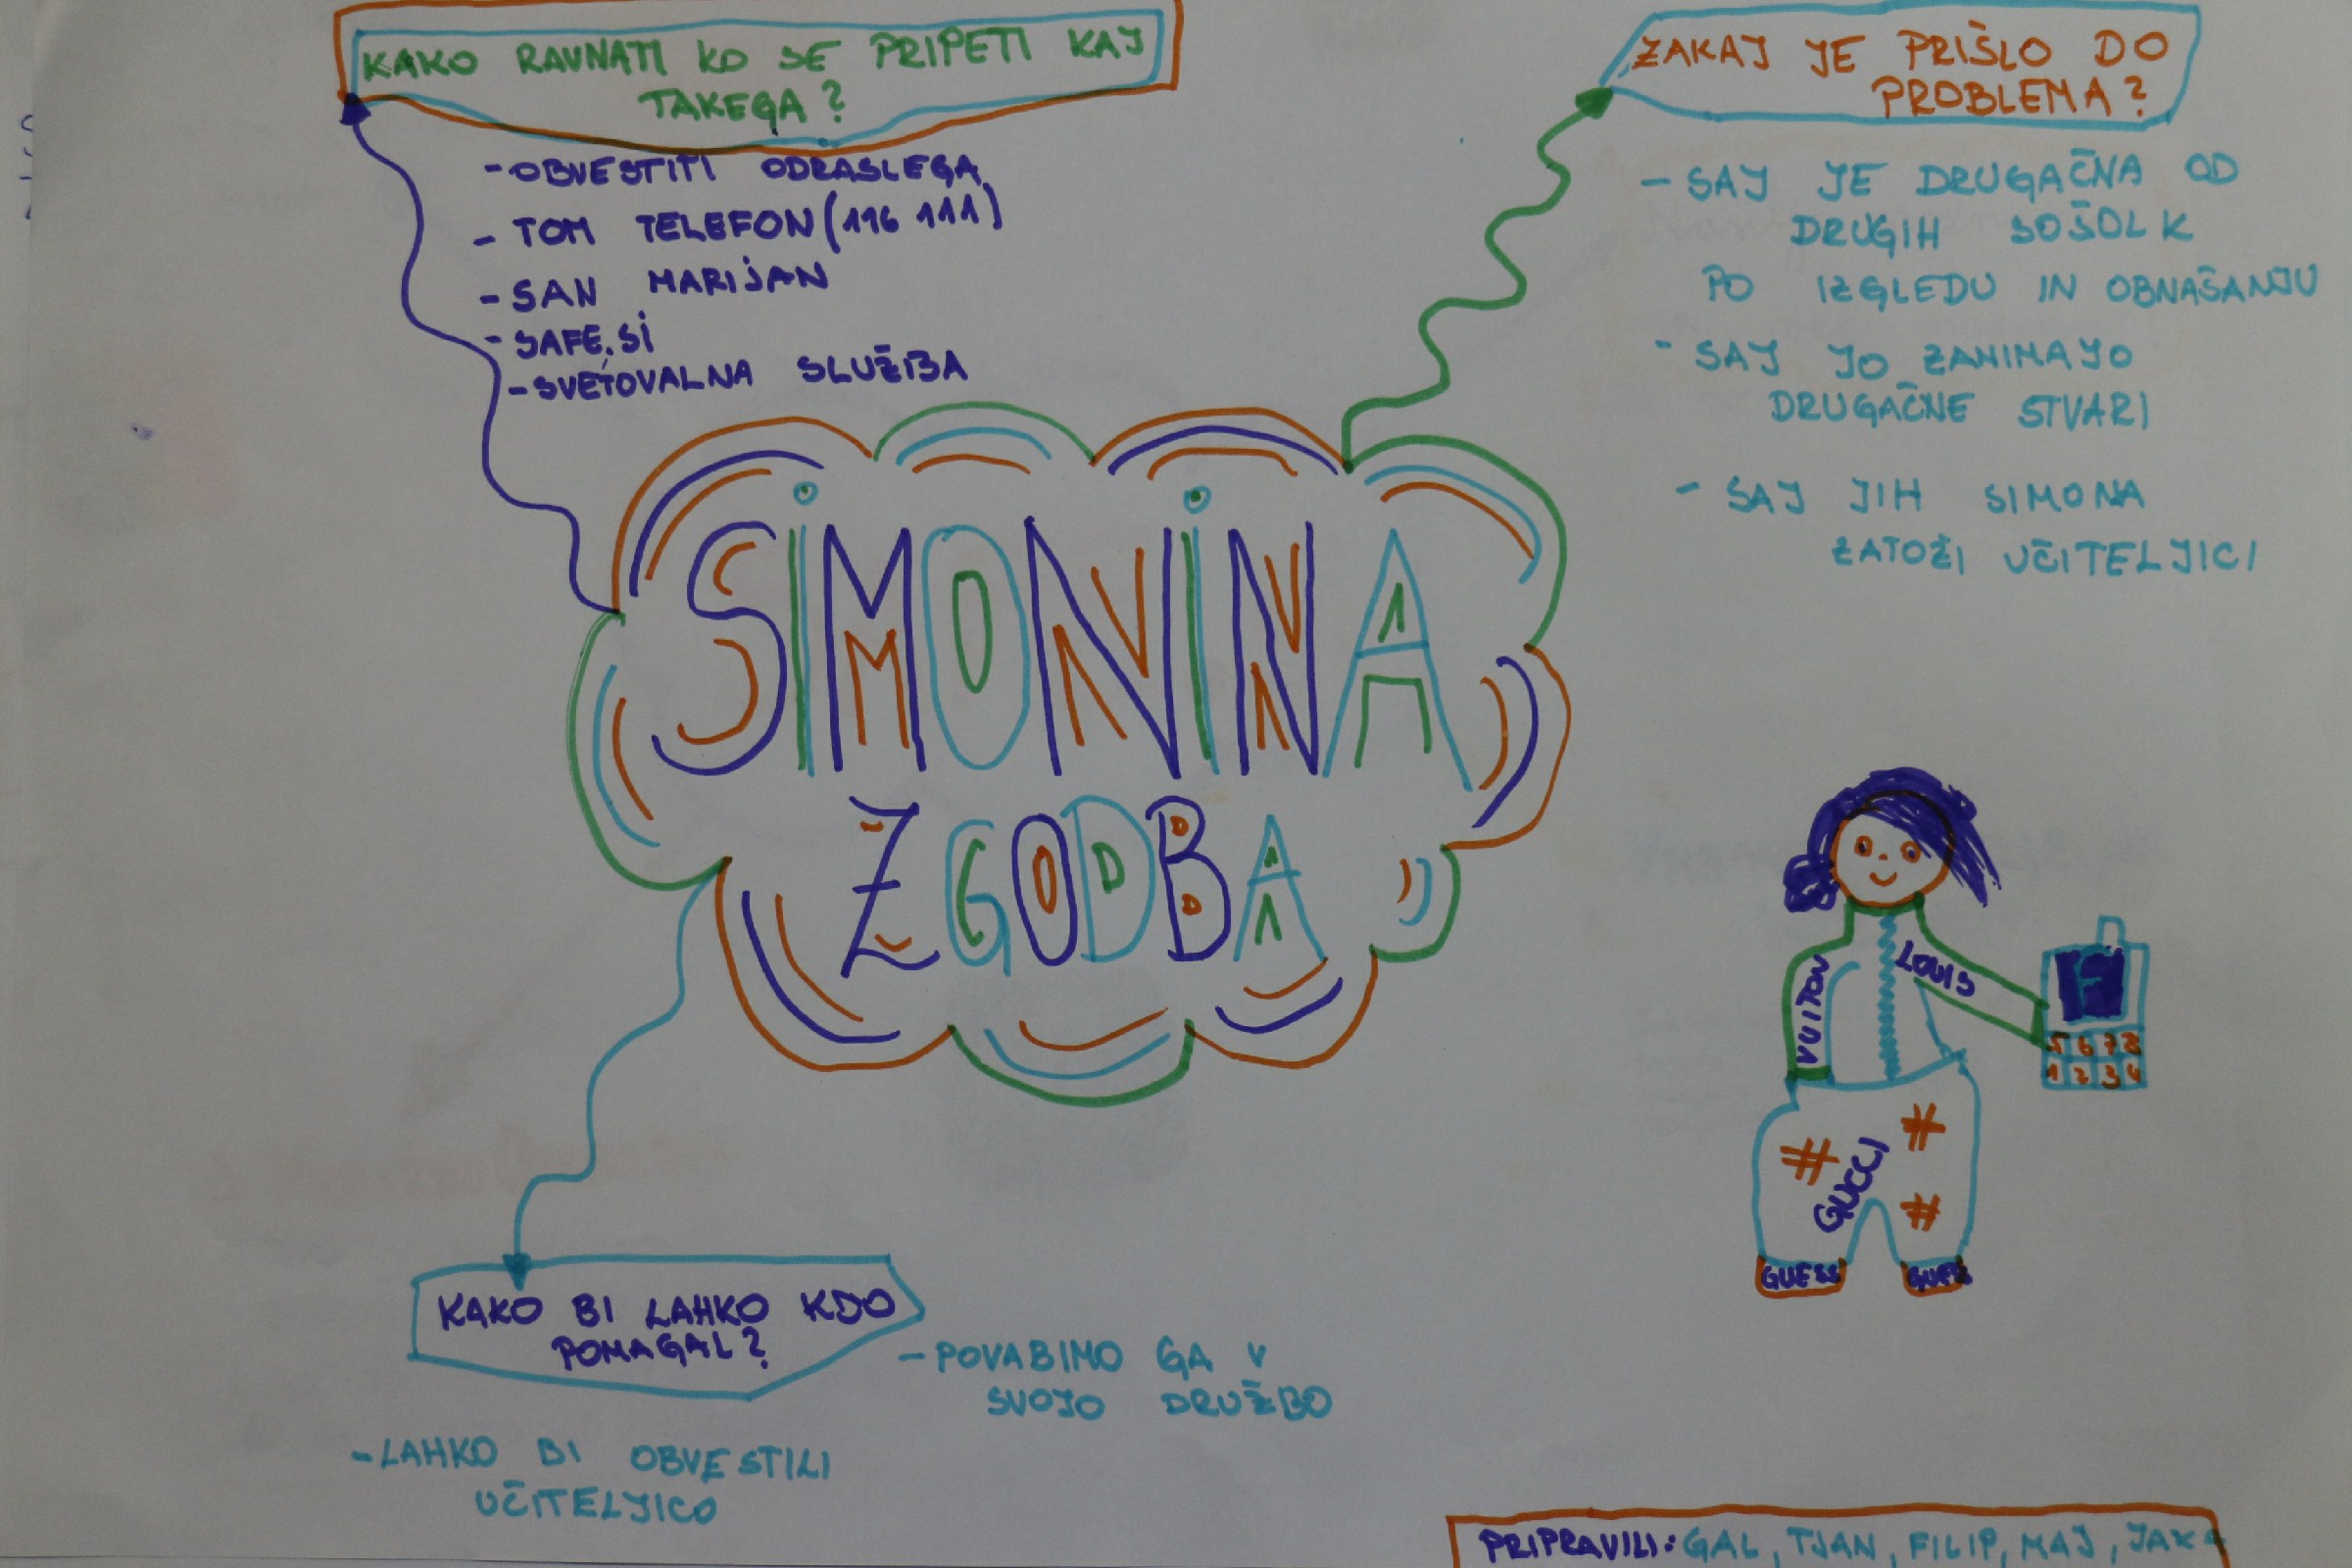 KAKO RAVNATI KO SE PRIPETI KAJ
TAKEGA?
- OBVESTITI ODRASLEGA
- TOM TELEFON (116 111)
- SAN MARIJAN
- SAFE.SI
- SVETOVALNA SLUŽBA
ZAKAJ JE PRIŠLO DO
PROBLEMA?
- SAJ JE DRUGAČNA OD
DRUGIH SOŠOLK
PO IZGLEDU IN OBNAŠANJU
- SAJ JO ZANIMAJO
DRUGAČNE STVARI
- SAJ JIH SIMONA
ZATOŽI UČITELJICI
SIMONINA
ZGODBA
LOUIS
VUITON
5 6 7 8
1 2 3 4
# #
GUCCI
#
GUESS GUESS
KAKO BI LAHKO KDO
POMAGAL?
- POVABIMO GA V
SVOJO DRUŽBO
- LAHKO BI OBVESTILI
UČITELJICO
PRIPRAVILI: GAL, TJAN, FILIP, MAJ, JAKA